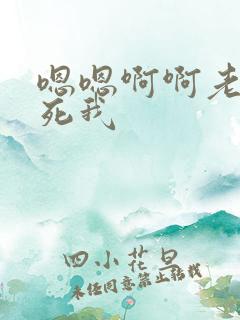 嗯嗯啊啊老
死我
四小花旦
未经同意禁止转载